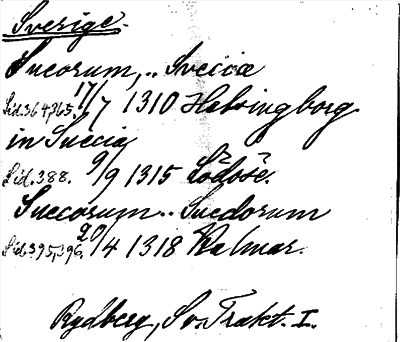 Sverige.
Sueorum, .. Sveciæ
Sid. 364,365. 17/7 1310 Helsingborg.
in Suecia
Sid. 388. 9/9 1315 Lödöse.
Sueorum .. Suedorum
Sid. 395,396. 20/4 1318 Kalmar.
Rydberg, Sv. Trakt. I.